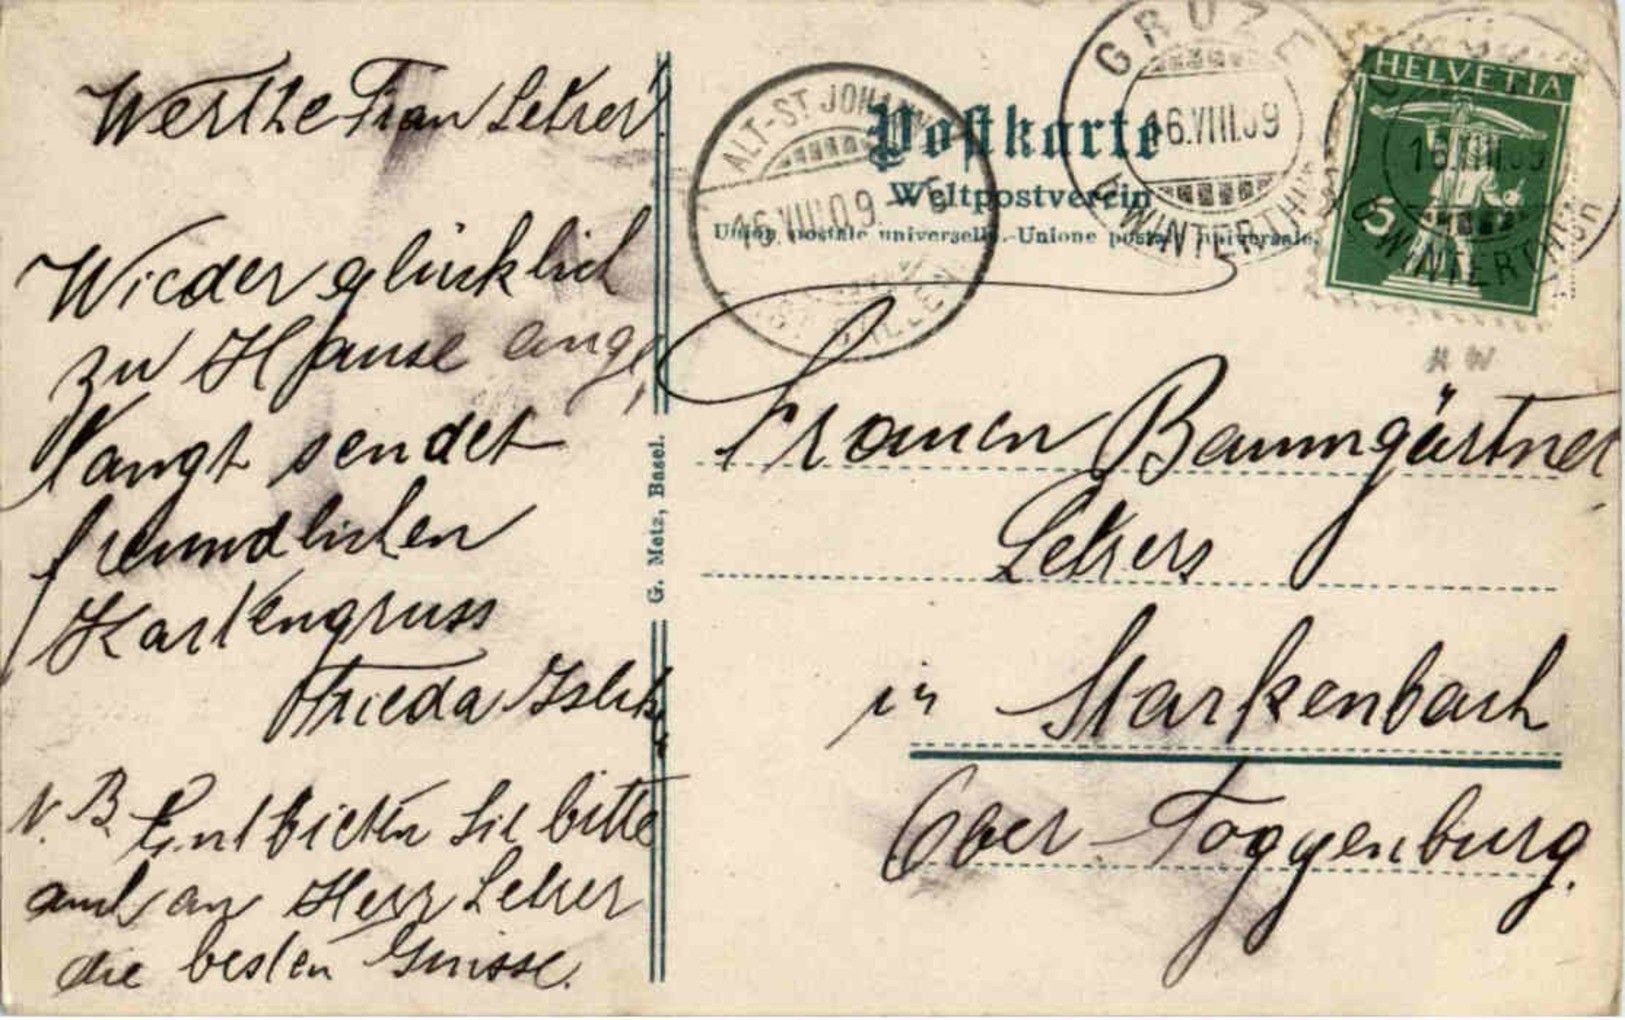 Werthe Frau Letzer!
Wieder glücklich
zu Hause ange,
langt sendet
freundlichen
Kartengruss
Frieda
N.B. Entbieten Sie bitte
auch an Herr Letzer
die besten Grüsse.
G. Metz, Basel.
Postkarte
Weltpostverein
Union postale universelle.-Unione postale universale.
ALT-ST JOHANN
16.VIII.09.
GRÜZE
16.VIII.09
WINTERTHUR
HELVETIA
5
16.VIII.09
WINTERTHUR
Frauen Baumgärtner
Letzers
in Starkenbach
Ober-Toggenburg.